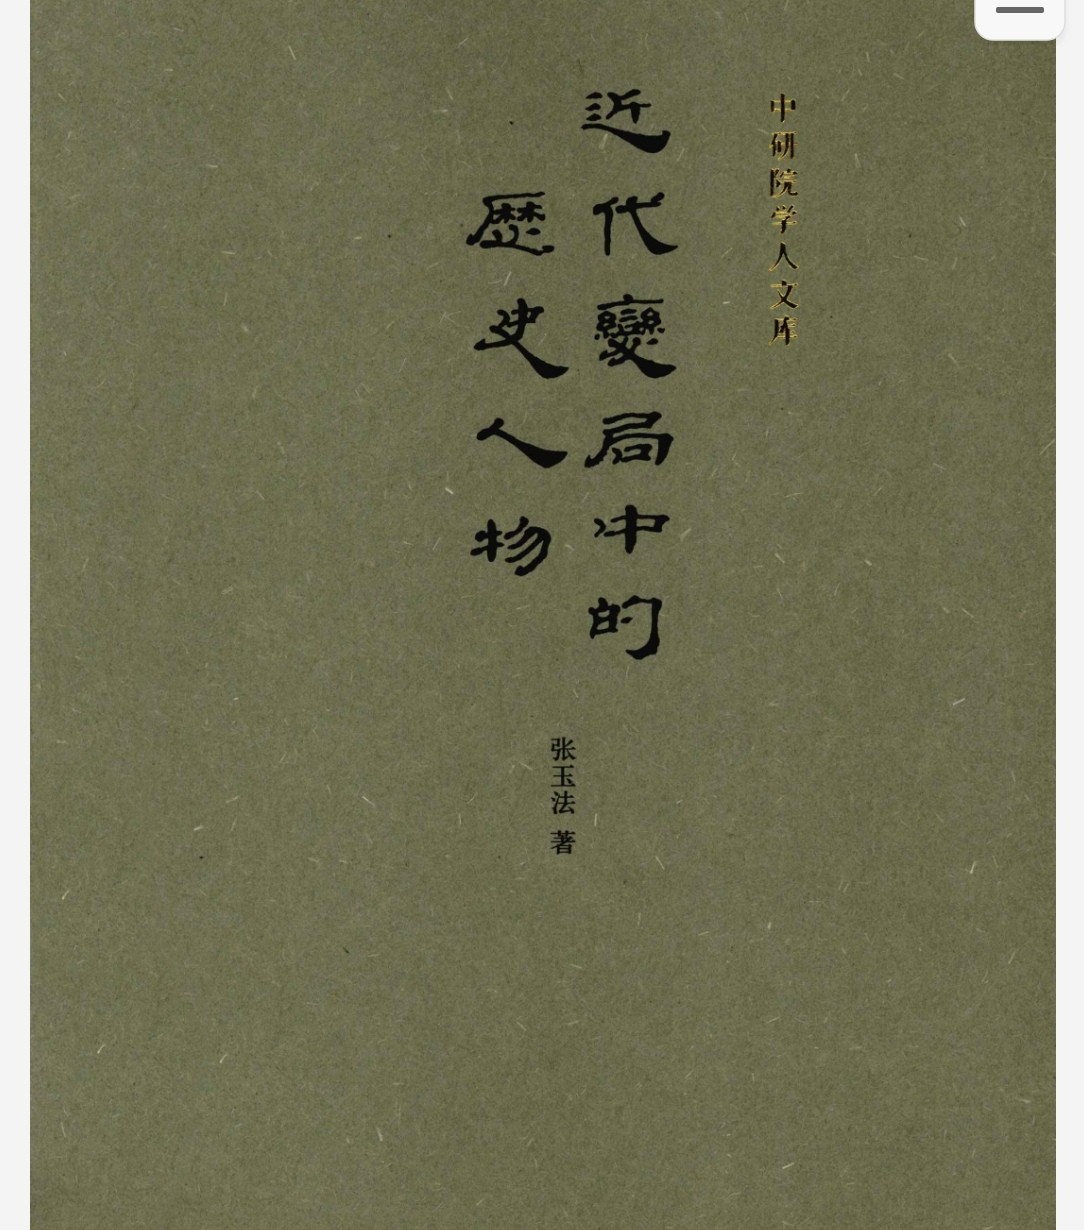 中研院学人文库
近代變局中的
歷史人物
张玉法 著